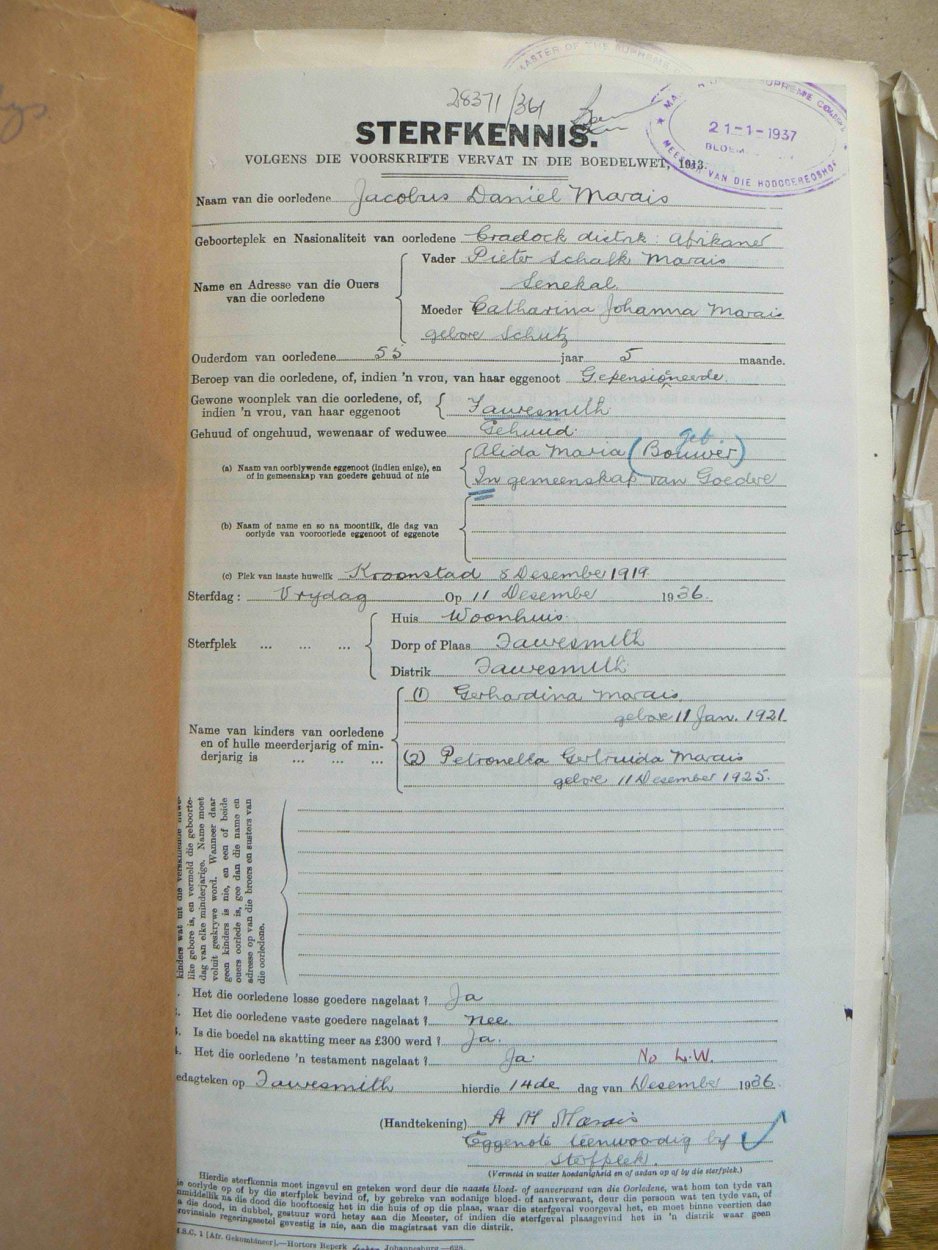 28371/36
MASTER OF THE SUPREME C
SUPREME CO
21-1-1937
BLOEM
MEESTER VAN DIE HOOGGEREGSHOF
STERFKENNIS.
VOLGENS DIE VOORSKRIFTE VERVAT IN DIE BOEDELWET, 1913.
Naam van die oorledene Jacobus Daniël Marais
Geboorteplek en Nasionaliteit van oorledene Cradock distrk: Afrikaner
Name en Adresse van die Ouers van die oorledene
Vader Pieter Schalk Marais
Senekal
Moeder Catharina Johanna Marais
gebore Schutz
Ouderdom van oorledene 55 jaar 5 maande.
Beroep van die oorledene, of, indien 'n vrou, van haar eggenoot Gepensioneerde
Gewone woonplek van die oorledene, of, indien 'n vrou, van haar eggenoot Fauresmith
Gehuud of ongehuud, wewenaar of weduwee Gehuud.
(a) Naam van oorblywende eggenoot (indien enige), en of in gemeenskap van goedere gehuud of nie
geb.
Alida Maria (Bouwer)
In gemeenskap van Goedere
(b) Naam of name en so na moontlik, die dag van oorlyde van vooroorlede eggenoot of eggenote
(c) Plek van laaste huwelik Kroonstad 8 Desember 1919
Sterfdag: Vrydag Op 11 Desember 1936.
Sterfplek ... ... ...
Huis Woonhuis.
Dorp of Plaas Fauresmith
Distrik Fauresmith
Name van kinders van oorledene en of hulle meerderjarig of minderjarig is ... ... ...
(1) Gerhardina Marais
gebore 11 Jan. 1921.
(2) Petronella Gertruida Marais
gebore 11 Desember 1925.
like gebore is, en vermeld die geboorte-
dag van elke minderjarige. Name moet
voluit geskrywe word. Wanneer daar
geen kinders is nie, en een of beide
ouers oorlede is, gee dan die name en
adresse op van die broers en susters van
die oorledene.
Het die oorledene losse goedere nagelaat? Ja
Het die oorledene vaste goedere nagelaat? Nee.
Is die boedel na skatting meer as £300 werd? Ja.
Het die oorledene 'n testament nagelaat? Ja. No L.W.
edagteken op Fauresmith hierdie 14de dag van Desember 1936.
(Handtekening) A M Marais
Eggenote teenwoordig by
sterfplek.
(Vermeld in watter hoedanigheid en of aldan op of by die sterfplek.)
Hierdie sterfkennis moet ingevul en geteken word deur die naaste bloed- of aanverwant van die Oorledene, wat hom ten tyde van
ie oorlyde op of by die sterfplek bevind of, by gebreke van sodanige bloed- of aanverwant, deur die persoon wat ten tyde van, of
nmiddellik na die dood die hooftoesig het in die huis of op die plaas, waar die sterfgeval voorgeval het, en moet binne veertien dae
a die dood, in dubbel, gestuur word hetsy aan die Meester, of indien die sterfgeval plaasgevind het in 'n distrik waar geen
rovinsiale regeringsetel gevestig is nie, aan die magistraat van die distrik.
M.B.C. 1 [Afr. Gekombineer].—Hortors Beperk Johannesburg —628